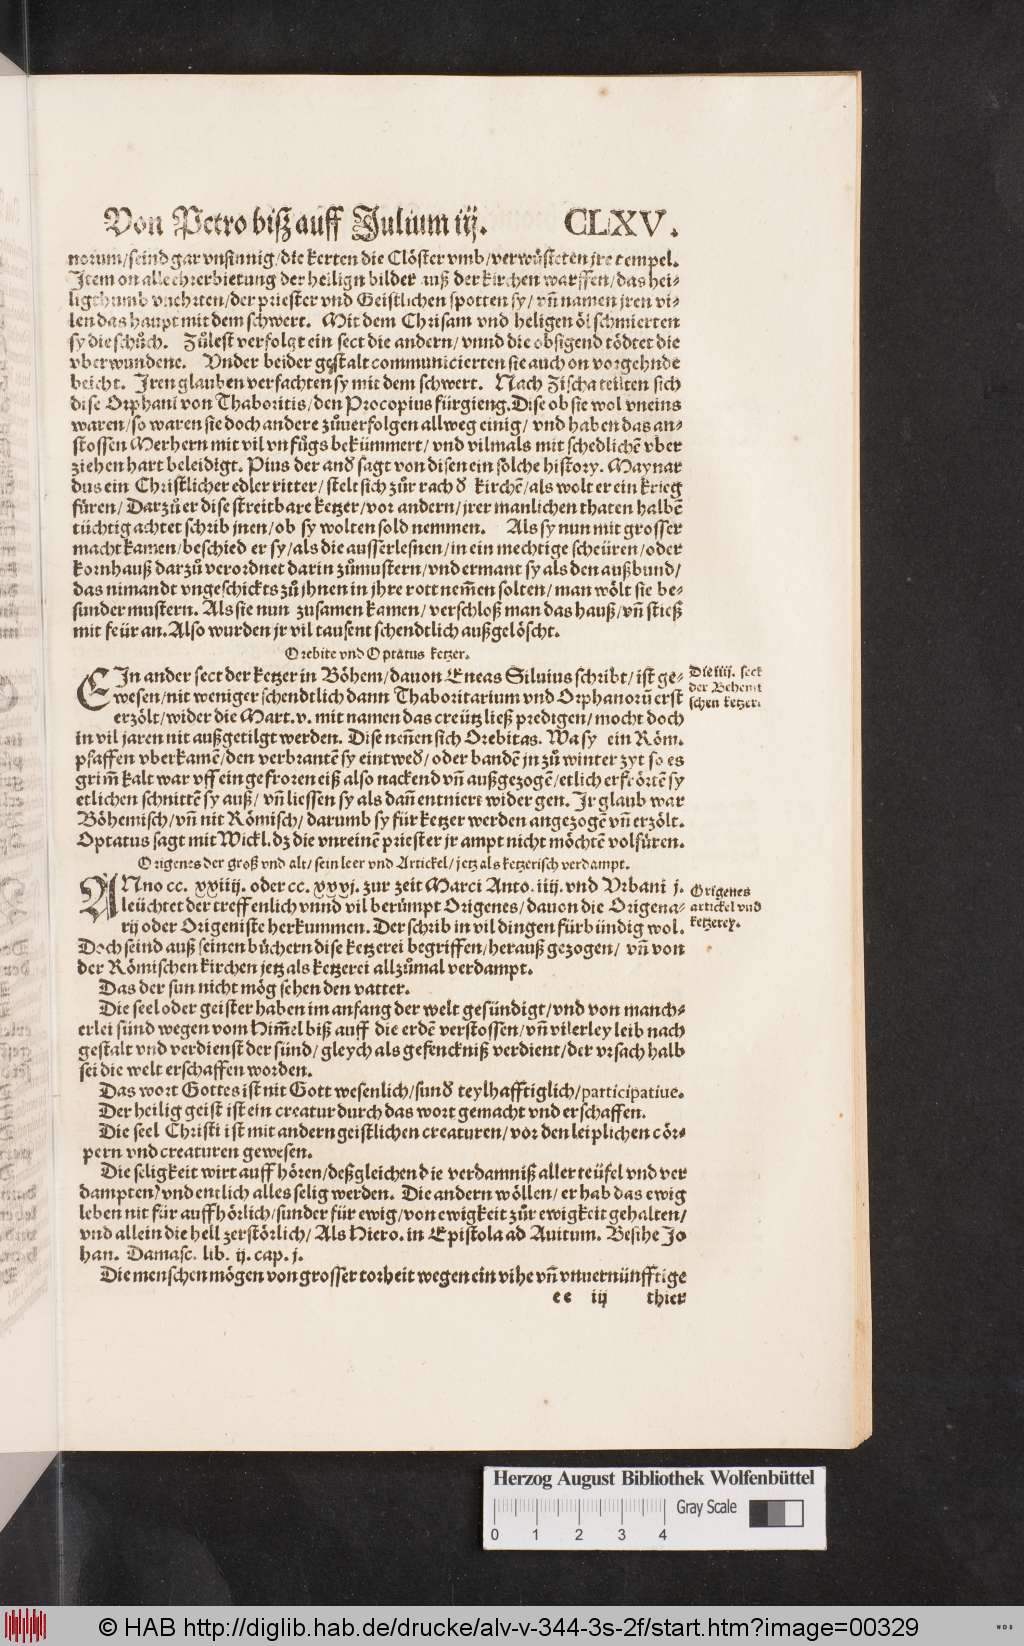 Von Petro biß auff Julium iij. CLXV.
norum/seind gar vnsinnig/die kerten die Clöster vmb/verwüsteten jre tempel.
Item on alle ehrerbietung der heilign bilder auß der kirchen warffen/das hei-
ligthumb vnehrten/der priester vnd Geistlichen spotten sy/ vñ namen jren vi-
len das haupt mit dem schwert. Mit dem Chrisam vnd heligen öl schmierten
sy die schůch. Zůlest verfolgt ein sect die andern/vnnd die obsigend tödtet die
vberwundene. Vnder beider gestalt communicierten sie auch on vorgehnde
beicht. Iren glauben verfachten sy mit dem schwert. Nach Zischa teilten sich
dise Orphani von Thaboritis/den Procopius fürgieng. Dise ob sie wol vneins
waren/so waren sie doch andere zůuerfolgen allweg einig/ vnd haben das an-
stossen Merhern mit vil vnfůgs bekümmert/vnd vilmals mit schedlichē vber
ziehen hart beleidigt. Pius der and̄ sagt von disen ein solche history. Maynar
dus ein Christlicher edler ritter/ stelt sich zůr rach d̄ kirchē/als wolt er ein krieg
füren/ Darzů er dise streitbare ketzer/vor andern/jrer manlichen thaten halbē
tüchtig achtet schrib jnen/ob sy wolten sold nemmen. Als sy nun mit grosser
macht kamen/beschied er sy/als die ausserlesnen/in ein mechtige scheüren/oder
kornhauß darzů verordnet darin zůmustern/vnd ermant sy als den außbund/
das nimandt vngeschickts zů jhnen in jhre rott nem̄en solten/man wölt sie be-
sunder mustern. Als sie nun zusamen kamen/verschloß man das hauß/vñ stieß
mit feür an. Also wurden jr vil tausent schendtlich außgelöscht.
Orebite vnd Optatus ketzer.
EIn ander sect der ketzer in Böhem/dauon Eneas Siluius schribt/ist ge-
wesen/nit weniger schendtlich dann Thaboritarium vnd Orphanorū erst
erzölt/wider die Mart. v. mit namen das creütz ließ predigen/mocht doch
in vil jaren nit außgetilgt werden. Dise nen̄en sich Orebitas. Wa sy ein Röm.
pfaffen vberkamē/den verbrantē sy eintwed̄/oder bandē jn zů winter zyt so es
grim̄ kalt war vff ein gefroren eiß also nackend vñ außgezogē/etlich erfrörtē sy
etlichen schnittē sy auß/ vñ liessen sy als dañ entniert wider gen. Ir glaub war
Böhemisch/vñ nit Römisch/darumb sy für ketzer werden angezogē vñ erzölt.
Optatus sagt mit Wickl. dz die vnreinē priester jr ampt nicht möchtē volfüren.
Die iiij. sect
der Behemi
schen ketzer.
Origenes der groß vnd alt/ sein leer vnd Artickel/jetz als ketzerisch verdampt.
ANno cc. xxiiij. oder cc. xxxj. zur zeit Marci Anto. iiij. vnd Vrbani j.
leüchtet der treffenlich vnnd vil berümpt Origenes/dauon die Origena-
rij oder Origeniste herkummen. Der schrib in vil dingen fürbündig wol.
Doch seind auß seinen büchern dise ketzerei begriffen/herauß gezogen/ vñ von
der Römischen kirchen jetz als ketzerei allzůmal verdampt.
Origenes
artickel vnd
ketzerey.
Das der sun nicht mög sehen den vatter.
Die seel oder geister haben im anfang der welt gesündigt/vnd von manch-
erlei sünd wegen vom Him̄el biß auff die erdē verstossen/vñ vilerley leib nach
gestalt vnd verdienst der sünd/gleych als gefenckniß verdient/der vrsach halb
sei die welt erschaffen worden.
Das wort Gottes ist nit Gott wesenlich/sund̄ teylhafftiglich/participatiue.
Der heilig geist ist ein creatur durch das wort gemacht vnd erschaffen.
Die seel Christi ist mit andern geistlichen creaturen/vor den leiplichen cör-
pern vnd creaturen gewesen.
Die seligkeit wirt auff hören/deßgleichen die verdamniß aller teüfel vnd ver
dampten/vnd entlich alles selig werden. Die andern wöllen/er hab das ewig
leben nit für auffhörlich/sunder für ewig/von ewigkeit zůr ewigkeit gehalten/
vnd allein die hell zerstörlich/Als Hiero. in Epistola ad Auitum. Besihe Jo
han. Damasc. lib. ij. cap. j.
Die menschen mögen von grosser torheit wegen ein vihe vñ vnuernünfftige
ee iij thier
Herzog August Bibliothek Wolfenbüttel
Gray Scale
0 1 2 3 4
© HAB http://diglib.hab.de/drucke/alv-v-344-3s-2f/start.htm?image=00329